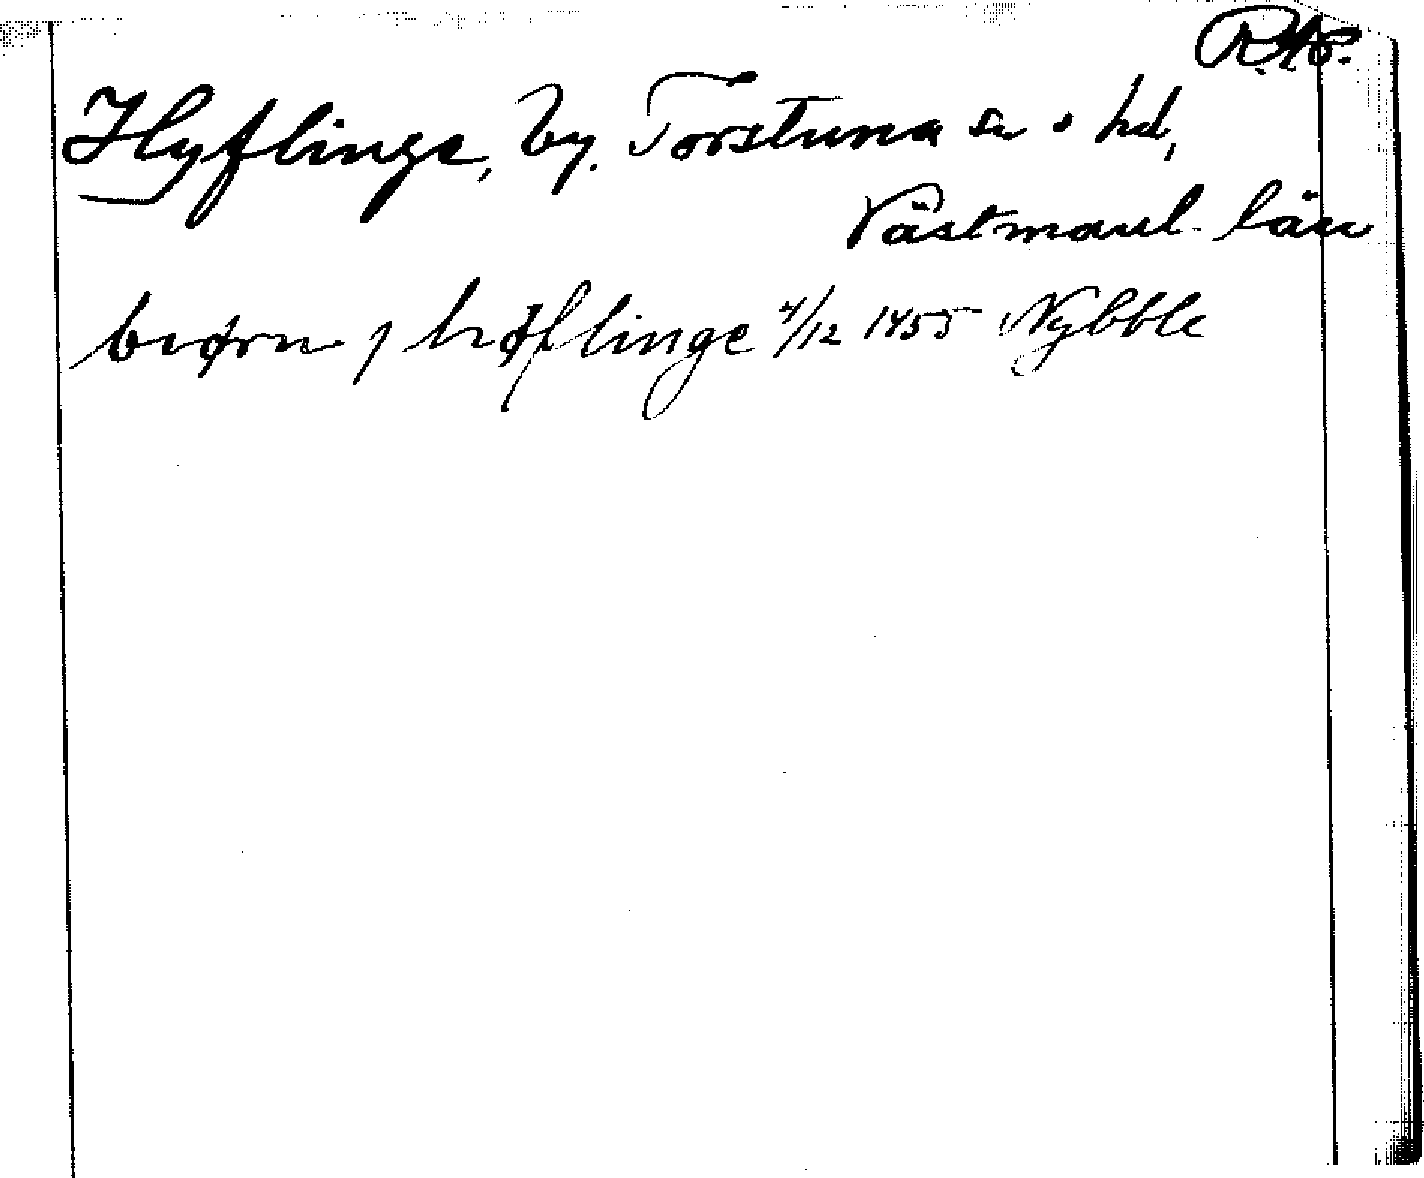 R.Ap.
Hyflinge, by. Torstuna sn o hd,
Västmanl. län
biørn j høflinge 4/12 1455 Nybble